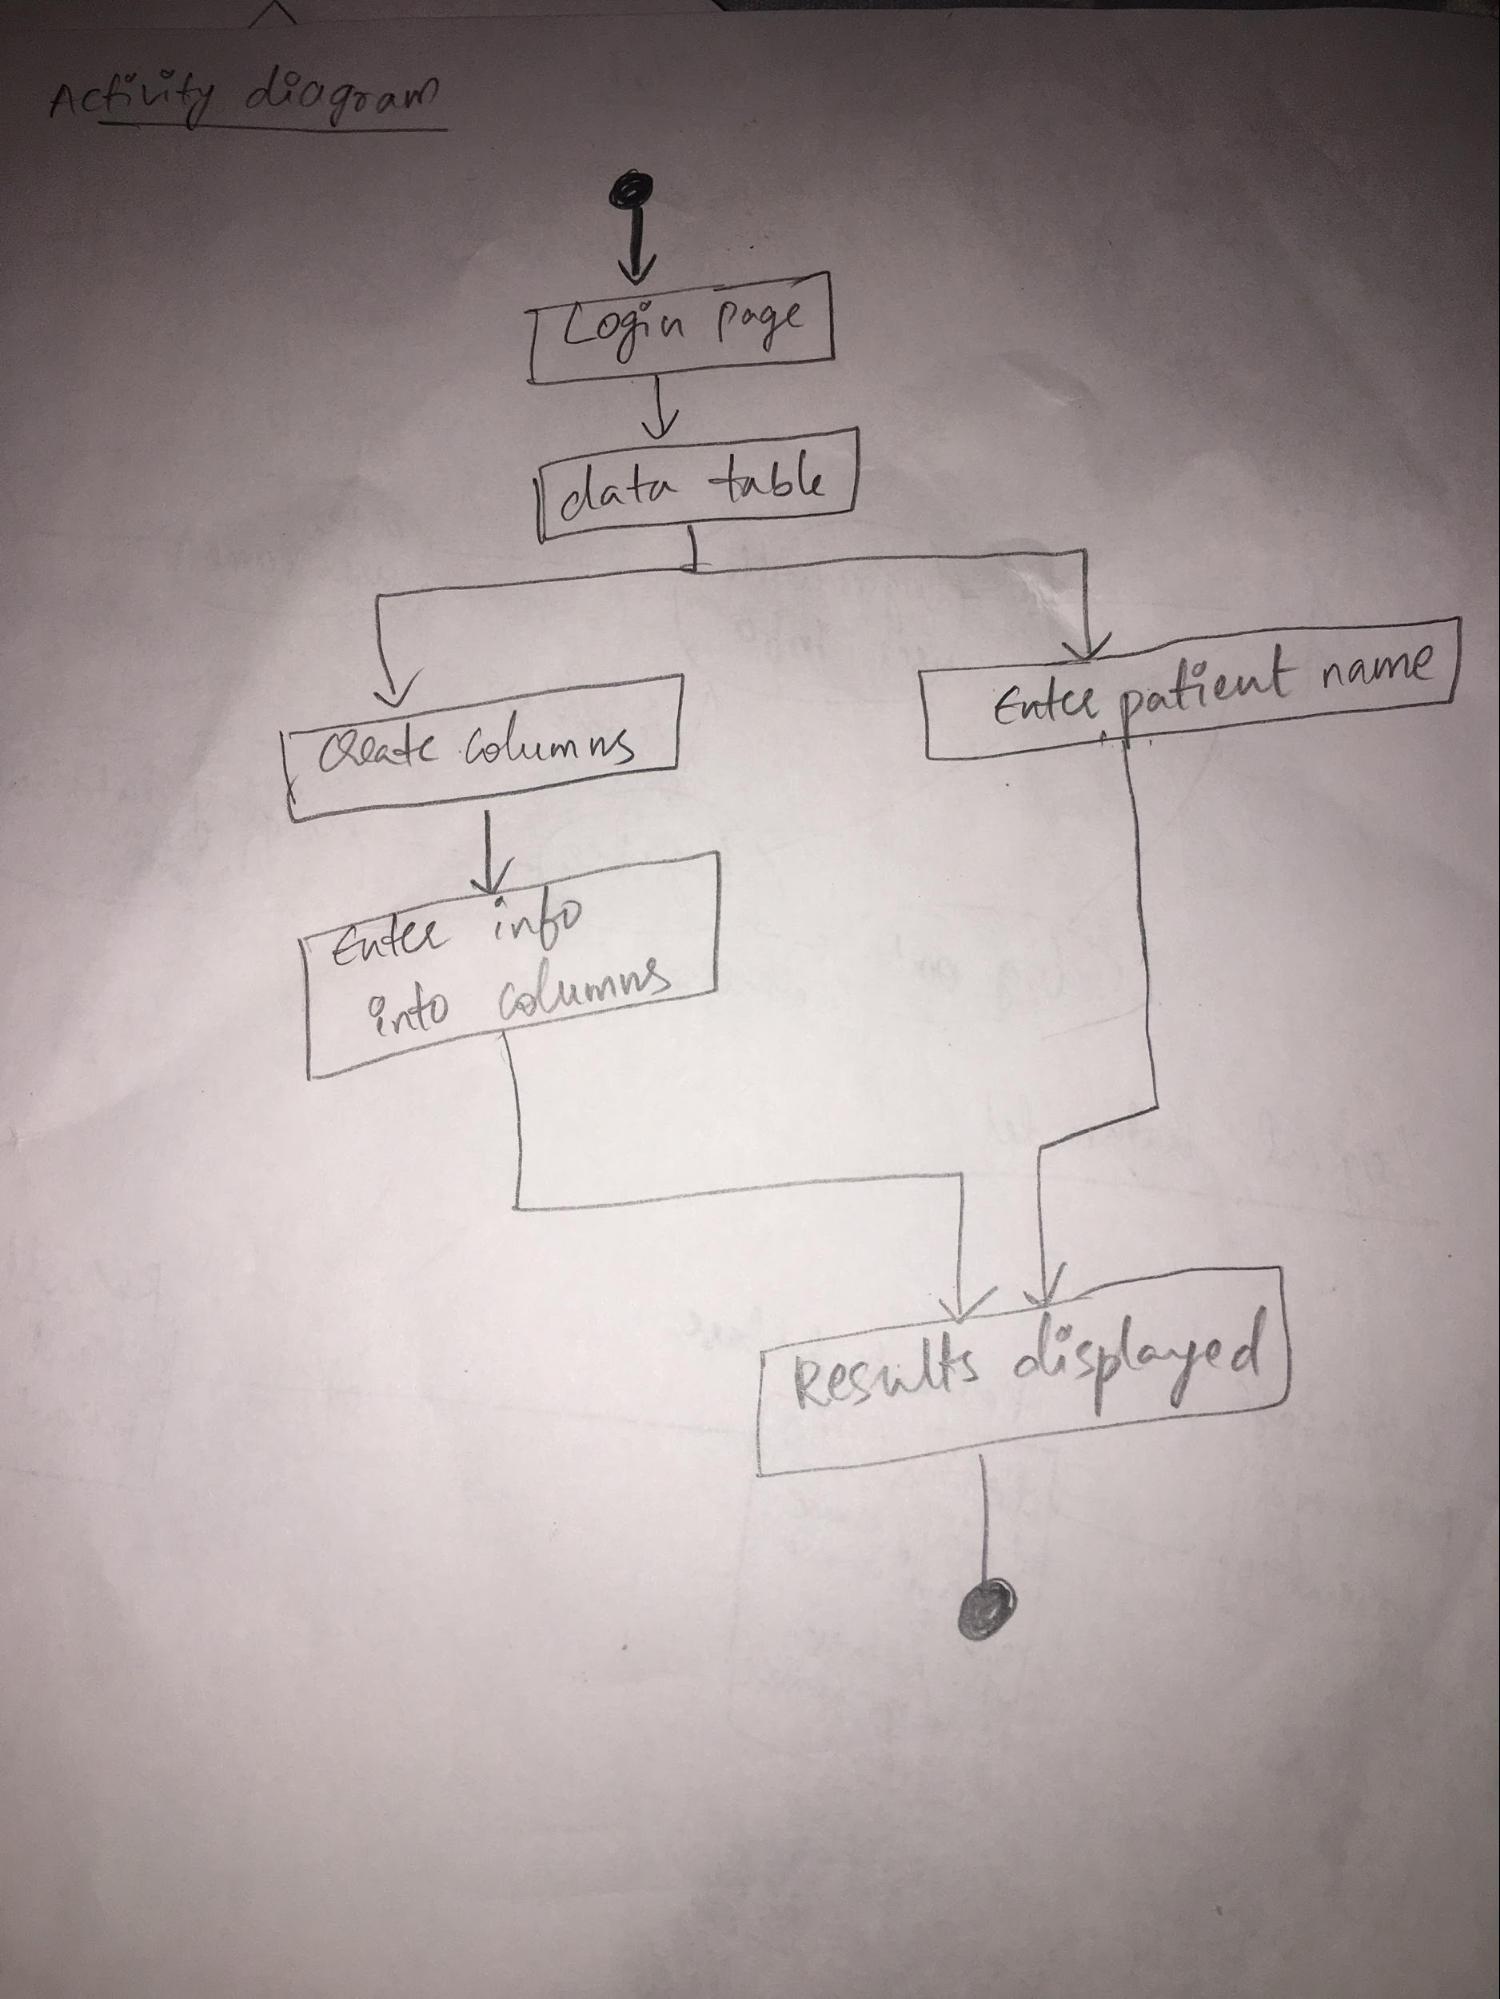 Activity diagram
Login page
data table
Create columns
Enter patient name
Enter info
into columns
Results displayed